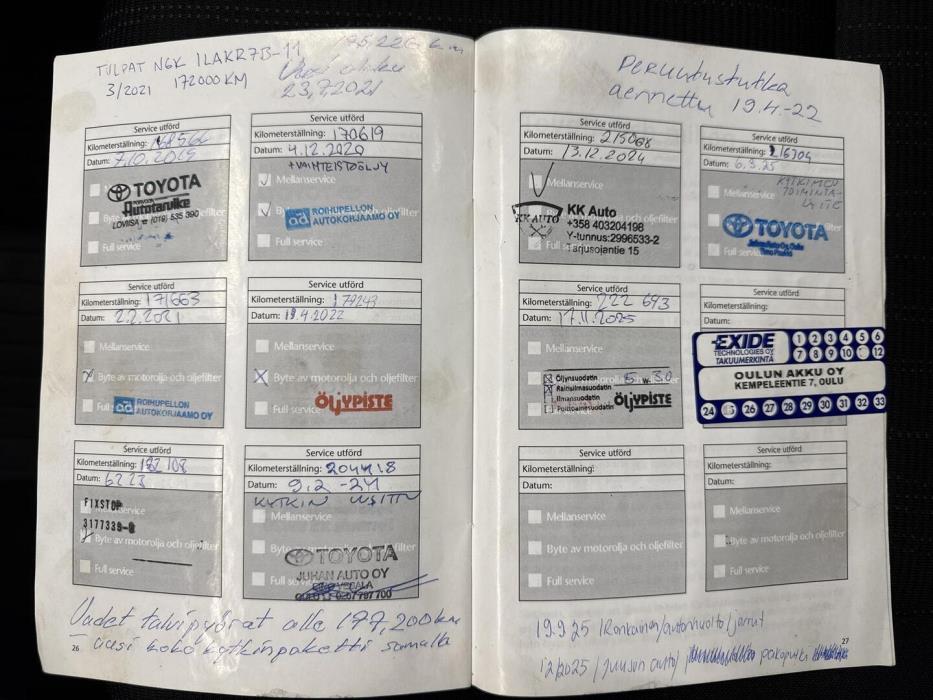 TULPAT NGK ILAKR7B-11
3/2021 172000 KM
175,226 km
23,7,2021
Service utförd
Kilometerställning: 168566
Datum: 7.10.2019
TOYOTA
Autotarvike
LOVIISA ☎ (019) 535 390
Full service
Service utförd
Kilometerställning: 170619
Datum: 4.12.2020
+VAIHTEISTOÖLJY
Mellanservice
ad ROIHUPELLON
AUTOKORJAAMO OY
Full service
Service utförd
Kilometerställning: 171663
Datum: 2.2.2021
Mellanservice
Byte av motorolja och oljefilter
Full
ad ROIHUPELLON
AUTOKORJAAMO OY
Service utförd
Kilometerställning: 179243
Datum: 19.4.2022
Mellanservice
Byte av motorolja och oljefilter
Full service
ÖLJYPISTE
Service utförd
Kilometerställning: 192108
Datum: 6223
FIXSTOP
3177339-8
Byte av motorolja och oljefilter
Full service
Service utförd
Kilometerställning: 204418
Datum: 9.2-24
KYTKIN UUSITTU
Mellanservice
TOYOTA
JUHAN AUTO OY
Uudet talvipyörät alle 177,200km
uusi koko kytkinpaketti samalla
26
Peruutustutka
asennettu 19.4.-22
Service utförd
Kilometerställning: 215068
Datum: 13.12.2024
Mellanservice
KK AUTO
KK Auto
+358 403204198
Y-tunnus:2996533-2
Tarjusojantie 15
Service utförd
Kilometerställning: 216704
Datum: 6.3.25
Mellanservice
KYTKIMEN
TOIMINTA-
TOYOTA
Juhan Auto Oy, Oulu
Service utförd
Kilometerställning: 222 693
Datum: 17.11.2025
Mellanservice
Öljynsuodatin 5 W 30
Raitisilmasuodatin
Ilmansuodatin
Polttoainesuodatin
ÖLJYPISTE
Service utförd
Kilometerställning:
Datum:
EXIDE
TECHNOLOGIES OY
TAKUUMERKINTÄ
1 2 3 4 5 6
7 8 9 10 11 12
OULUN AKKU OY
KEMPELEENTIE 7, OULU
24 25 26 27 28 29 30 31 32 33
Service utförd
Kilometerställning:
Datum:
Mellanservice
Byte av motorolja och oljefilter
Full service
Service utförd
Kilometerställning:
Datum:
Mellanservice
Byte av motorolja och oljefilter
Full service
19.9.25 /Ronkainen/autonhuolto/jarrut
12/2025 /Juuson auto/ pakoputki
27